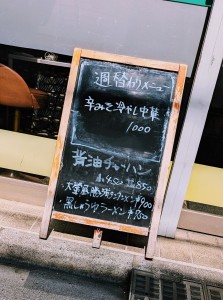 週替わりメニュー
辛みそ冷やし中華
1000
醤油チャーハン
小450 並850
¥900
黒しょうゆラーメン ¥750